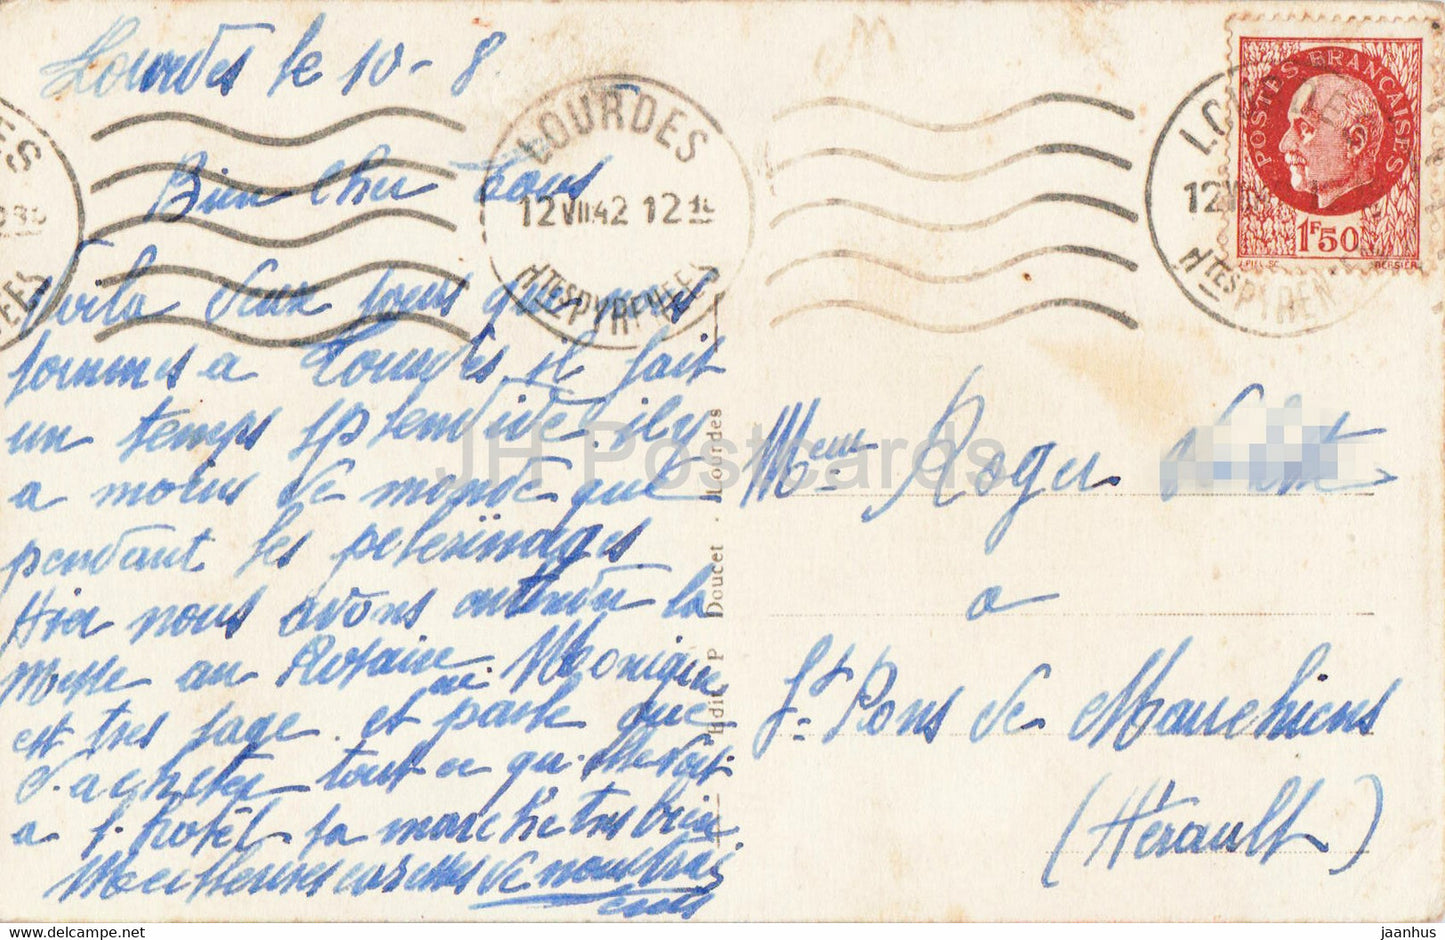 Lourdes le 10 - 8
Bien cher Tous
Voila deux jours que nous
sommes a Lourdes, il fait
un temps splendide. il y
a moins de monde que
pendant les pelerinages
Hier nous avons entendu la
messe au Rosaire. Monique
est tres sage. et parle que
d'acheter tout ce qu'elle voit.
a l'hotêl sa marche tres bien
Meilleures caresses de nous trois
LOURDES
12 VII 42 12
HTES PYRENEES
LOURDES
HTES PYRENEES
POSTES FRANÇAISES
1F50
J.PIEL.SC.
BERSIER
Edit. P Doucet - Lourdes
Meur Roger
Mme
a
St Pons de Mauchiens
(Hérault)
JH Postcards
jaanhus @ hipstamp.com